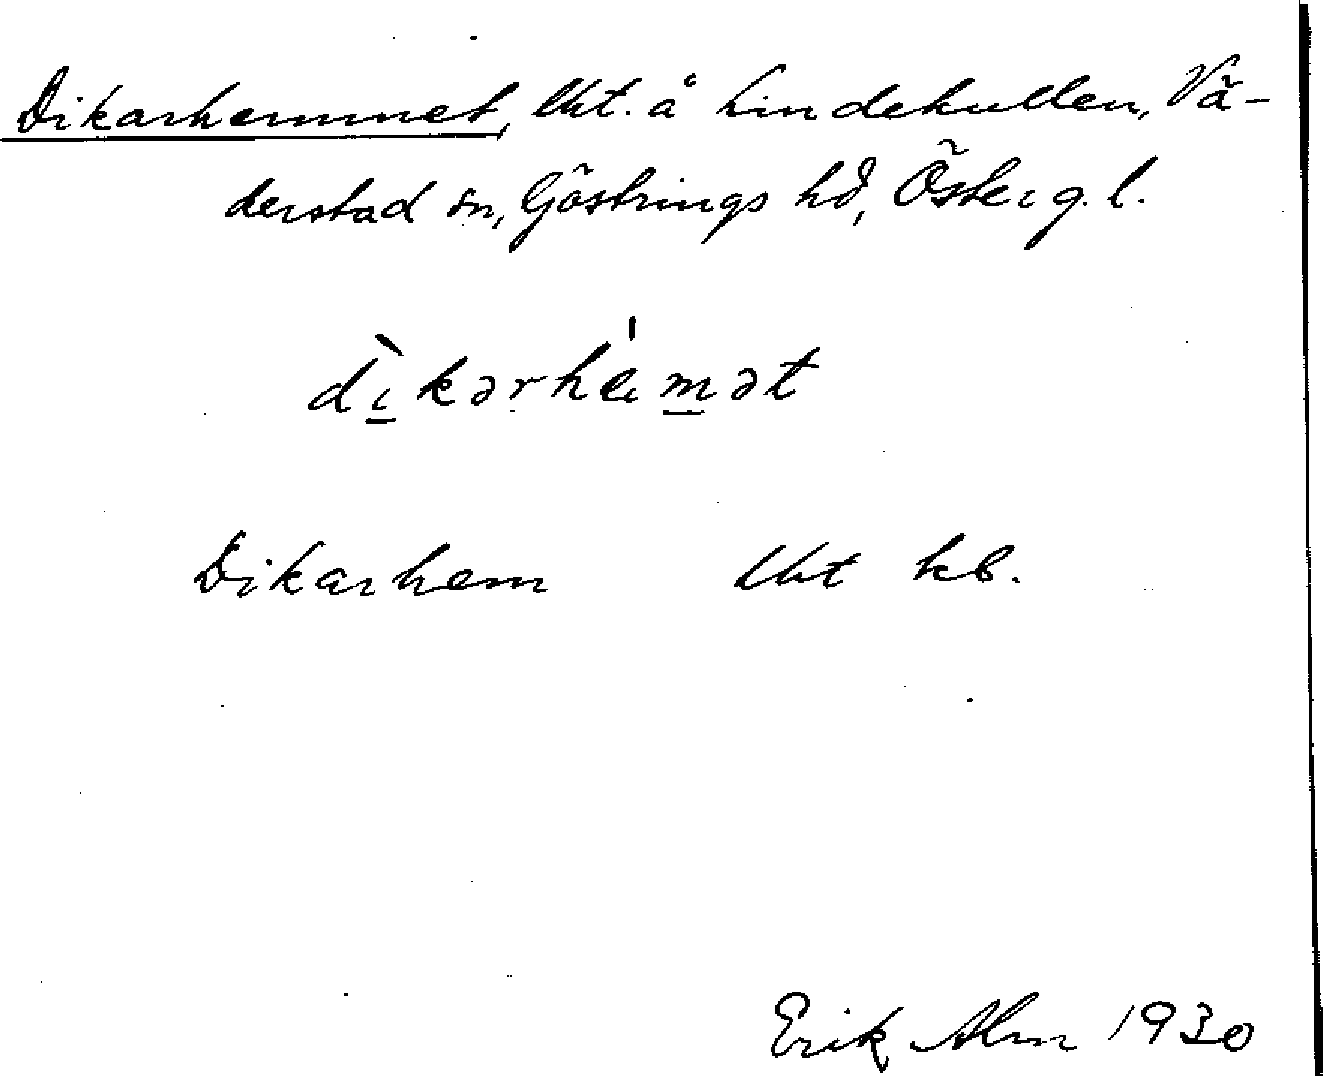 Dikarhemmet, lht. å Lindekullen, Vä-
derstad sn, Göstrings hd, Österg. l.
dìkərhe̍mət
Dikarhem lht kb.
Erik Alm 1930